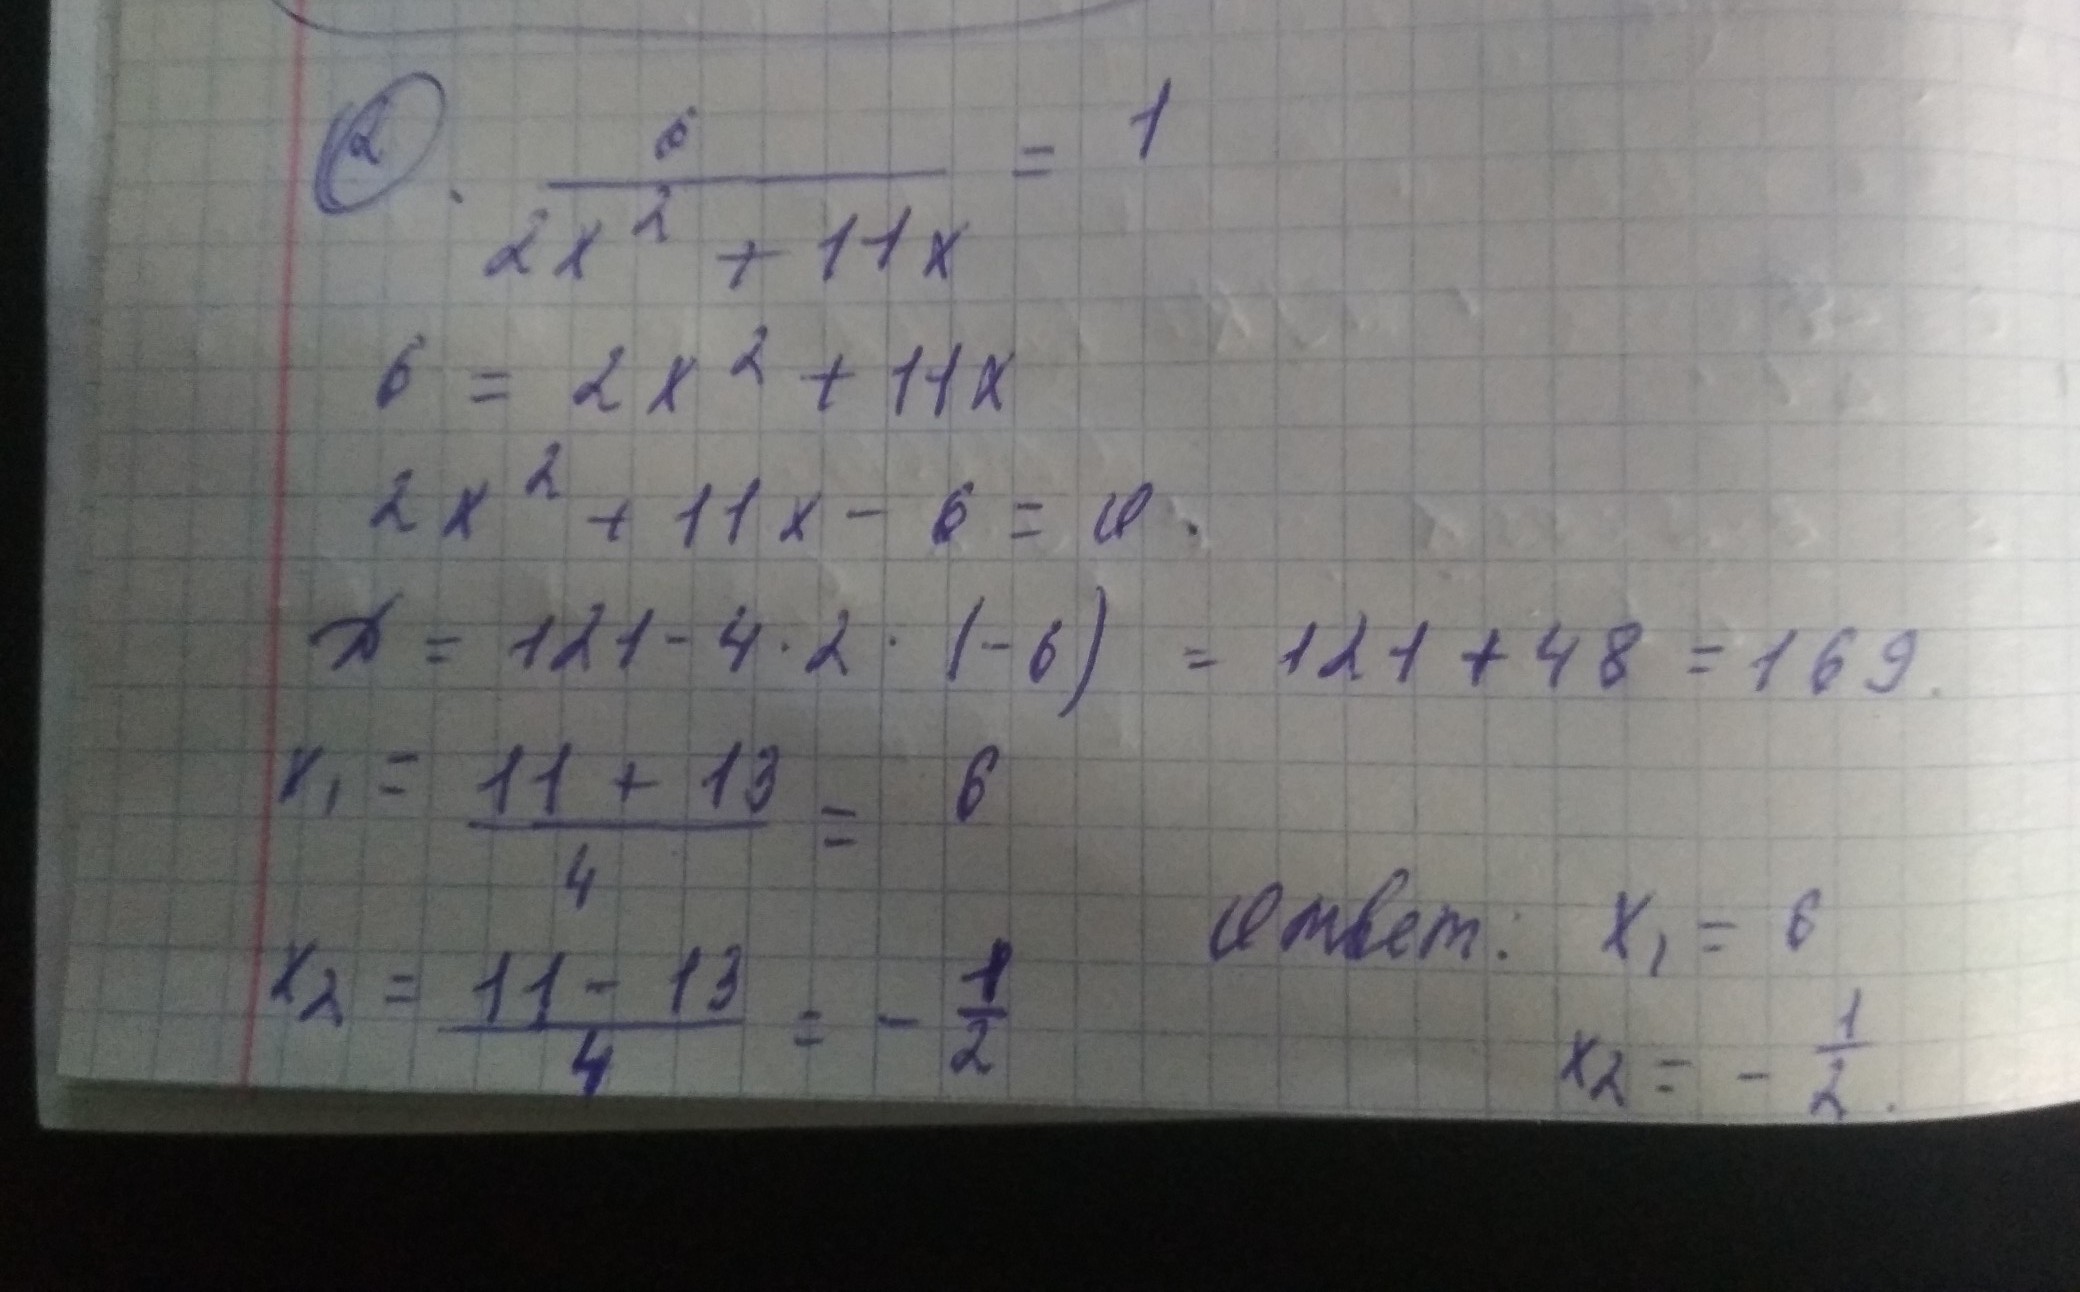 2. 6 / (2x² + 11x) = 1
6 = 2x² + 11x
2x² + 11x - 6 = 0.
D = 121 - 4 · 2 · (-6) = 121 + 48 = 169.
x₁ = (11 + 13) / 4 = 6
x₂ = (11 - 13) / 4 = - 1/2
Ответ: x₁ = 6
x₂ = - 1/2.